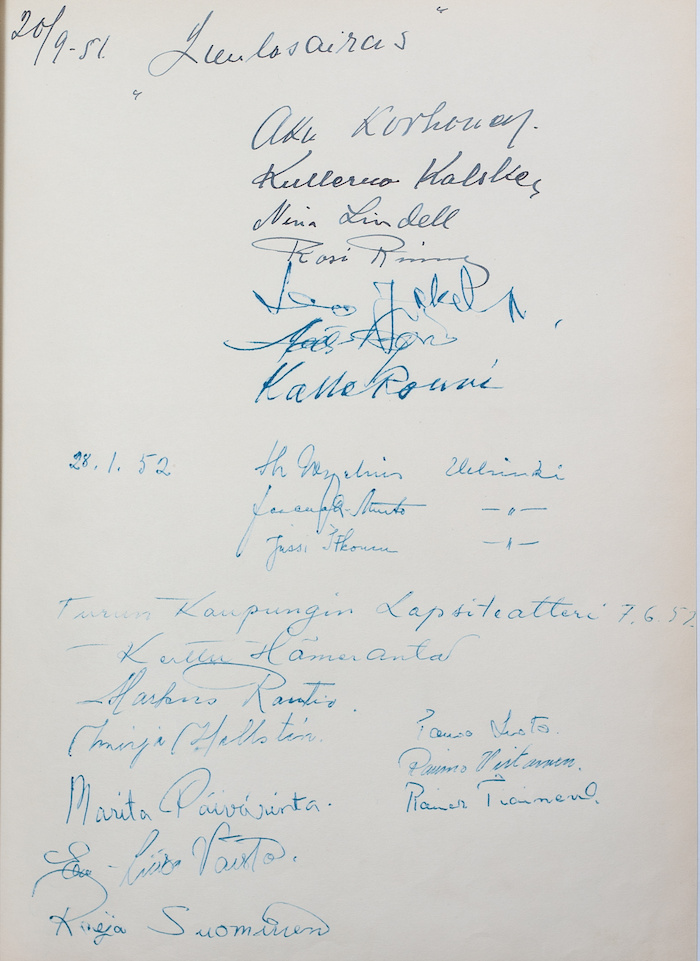 20/9-51. "Luulosairas"
Aku Korhonen.
Kullervo Kalske
Nina Lindell
Rosi Rinne
Leo Jokela
Kalle Rouni
28.1.52. Helsinki
—"—
Jussi Itkonen —"—
Turun Kaupungin Lapsiteatteri 7.6.52.
— Kerttu Hämeranta
Markus Rautio.
Mirja Hallstén.
Marita Päivärinta.
Eva-Liisa Vaisto.
Kreeja Suominen
Tauno Lusto.
Raimo Virtanen.
Rainer Tiainen.